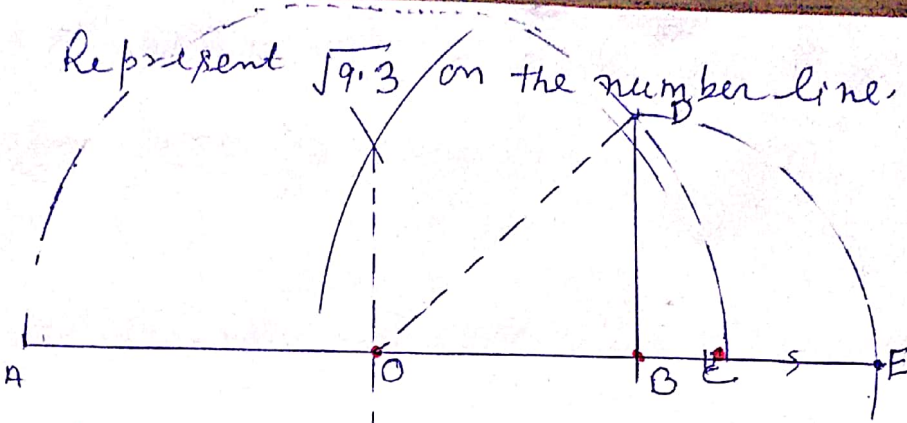 Represent √9.3 on the number line.
D
A O B C E